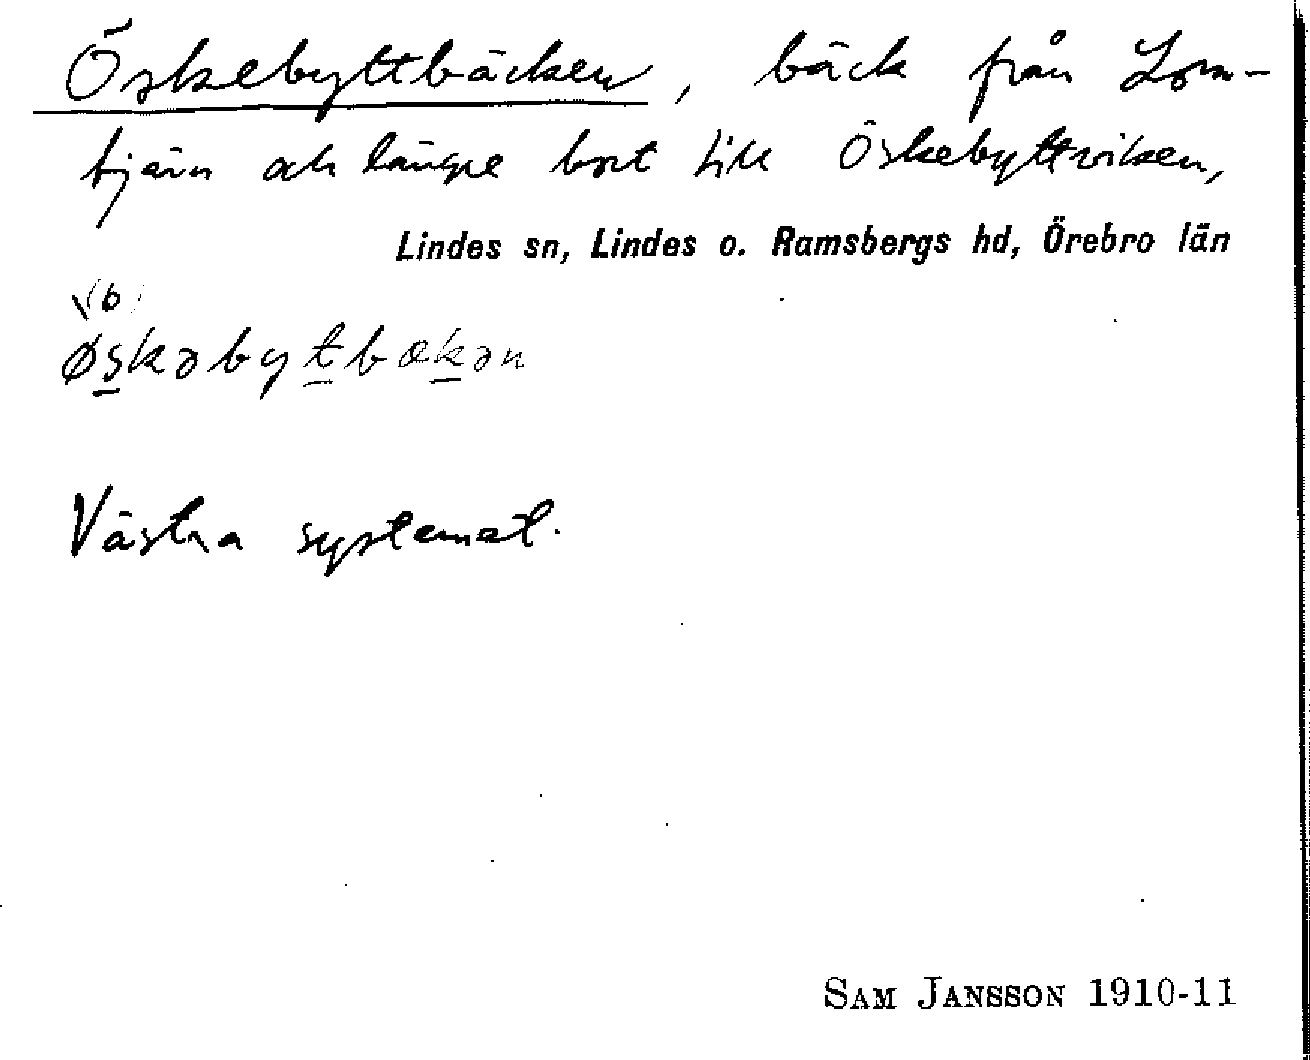 Öskebyttbäcken, bäck från Lom-
tjärn och längre bort till Öskebyttviken,
Lindes sn, Lindes o. Ramsbergs hd, Örebro län
øs̲kəbyt̲bæk̲ən
Västra systemet.
SAM JANSSON 1910-11